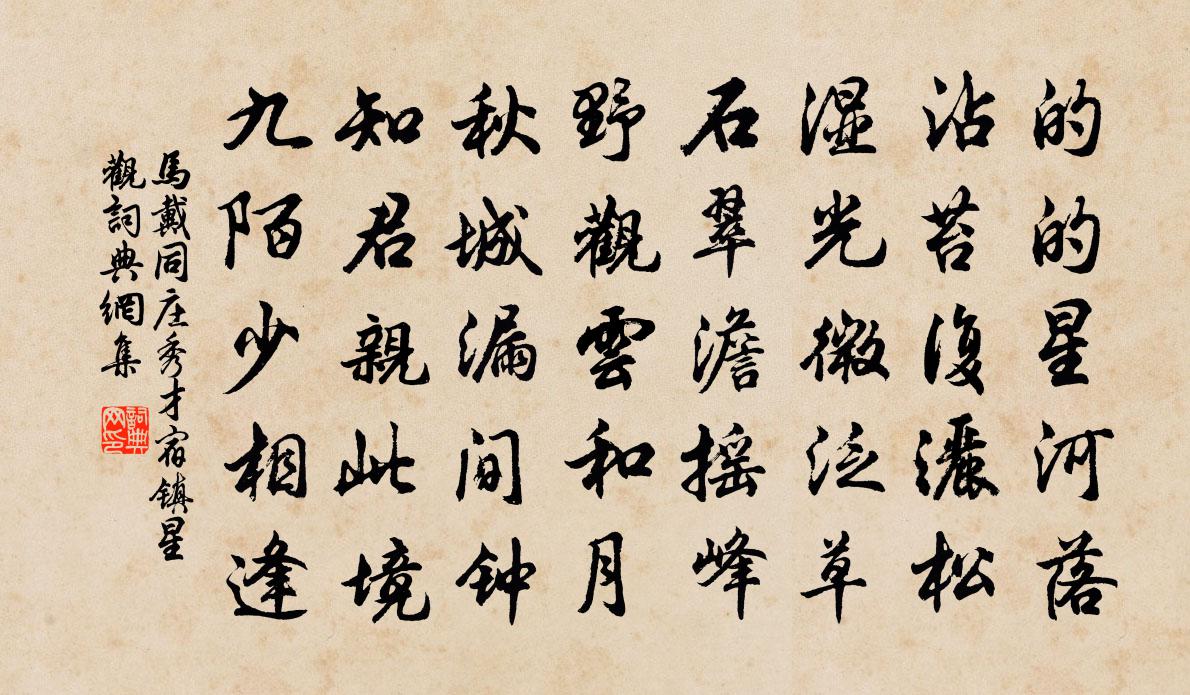 的的星河落
沾苔復灑松
湿光微泛草
石翠澹摇峰
野觀雲和月
秋城漏间钟
知君親此境
九陌少相逢
馬戴同庄秀才宿镇星
觀詞典網集
詞典
网印